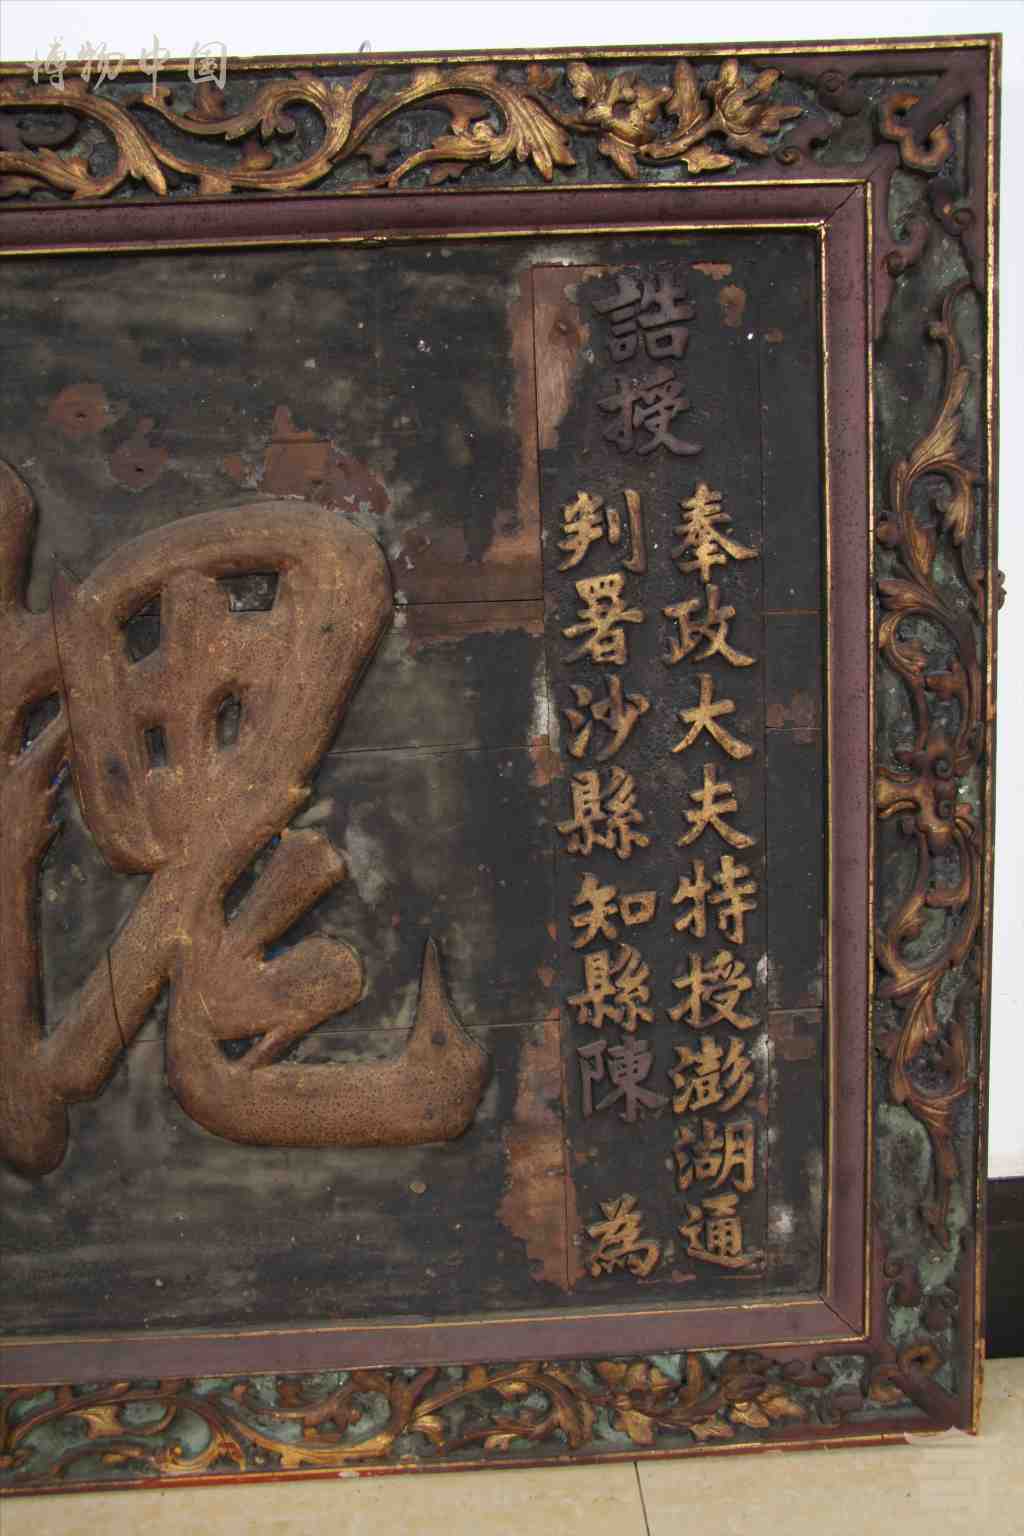 博物中国
誥授
奉政大夫特授澎湖通
判署沙縣知縣陳 為
魁